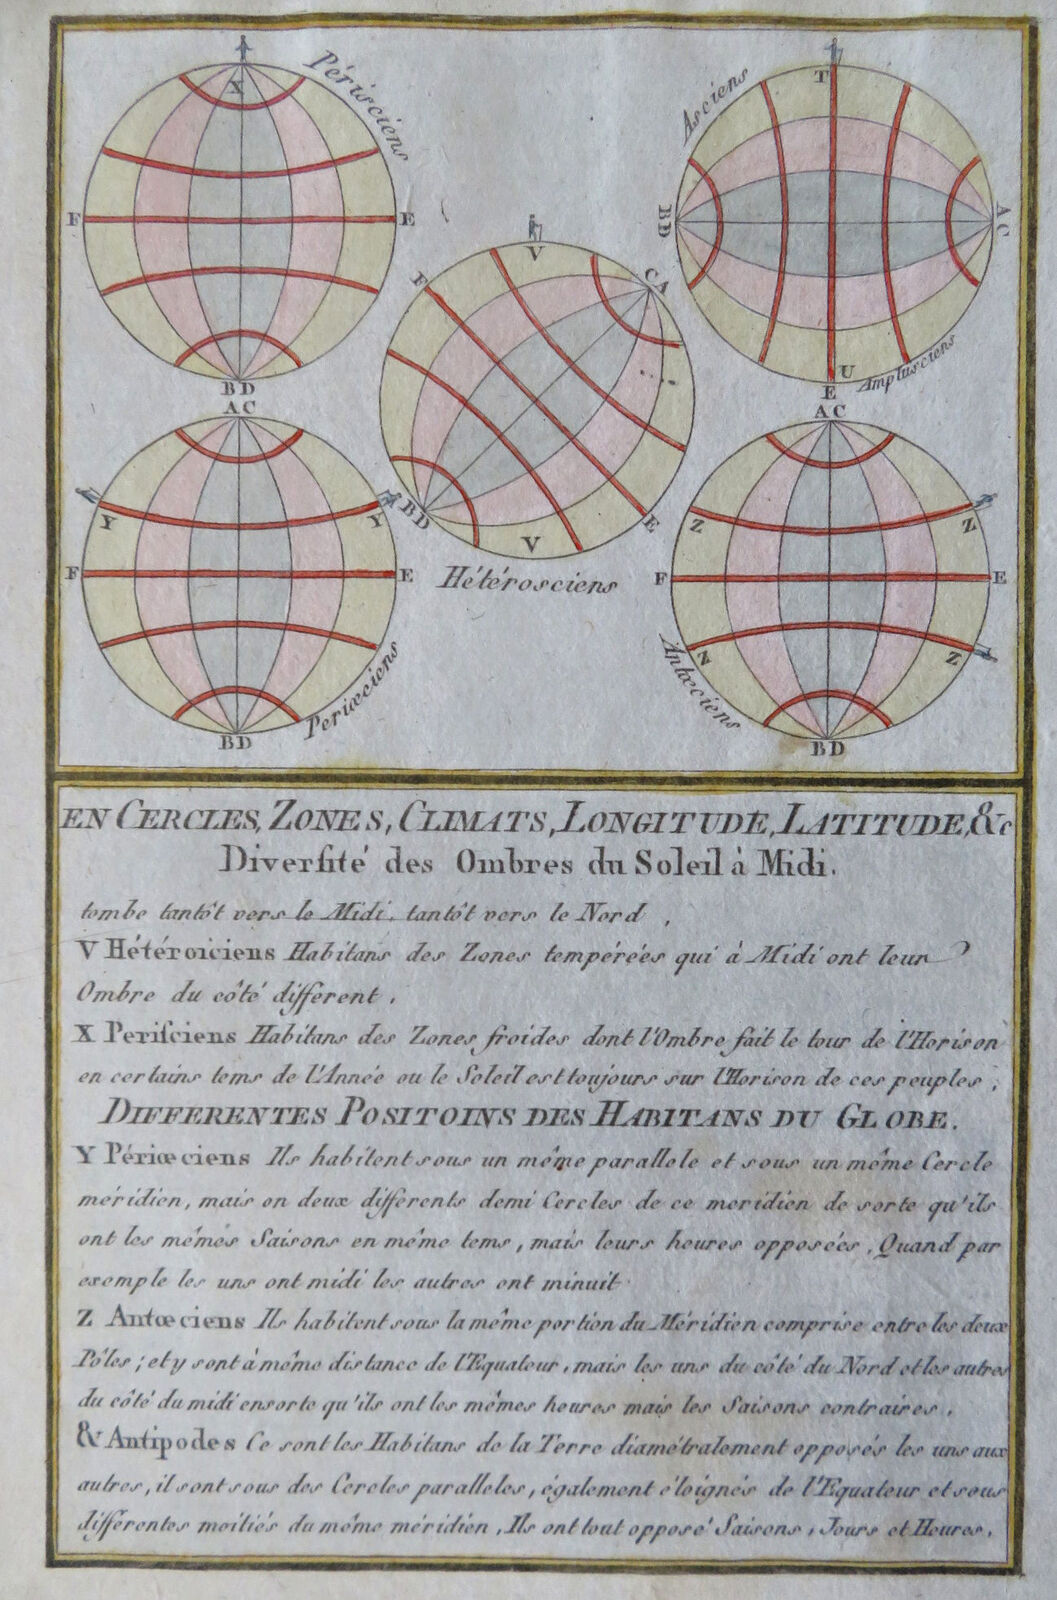 Périsciens
X
F
E
BD
Asciens
T
BD
AC
U
E
Amphisciens
V
F
CA
BD
E
V
Hétérosciens
AC
Y
Y
F
E
BD
Periœciens
AC
Z
Z
F
E
Z
Z
BD
Antœciens
EN CERCLES, ZONES, CLIMATS, LONGITUDE, LATITUDE, &c
Diverſité des Ombres du Soleil à Midi.
tombe tantôt vers le Midi, tantôt vers le Nord,
V Hétéroſciens Habitans des Zones tempérées qui à Midi ont leur
Ombre du côté différent,
X Periſciens Habitans des Zones froides dont l'Ombre fait le tour de l'Horison
en certains tems de l'Année ou le Soleil est toujours sur l'Horison de ces peuples,
DIFFERENTES POSITOINS DES HABITANS DU GLOBE.
Y Périœciens Ils habitent sous un même parallele et sous un même Cercle
méridien, mais on deux differents demi Cercles de ce meridien de sorte qu'ils
ont les mêmes Saisons en même tems, mais leurs heures opposées, Quand par
exemple les uns ont midi les autres ont minuit
Z Antœciens Ils habitent sous la même portion du Méridien comprise entre les deux
Pôles; et y sont à même distance de l'Equateur, mais les uns du côté du Nord et les autres
du côté du midi ensorte qu'ils ont les mêmes heures mais les Saisons contraires,
& Antipodes Ce sont les Habitans de la Terre diamétralement opposés les uns aux
autres, il sont sous des Cercles paralleles, également éloignés de l'Equateur et sous
différentes moitiés du même méridien, Ils ont tout opposé Saisons, Jours et Heures,